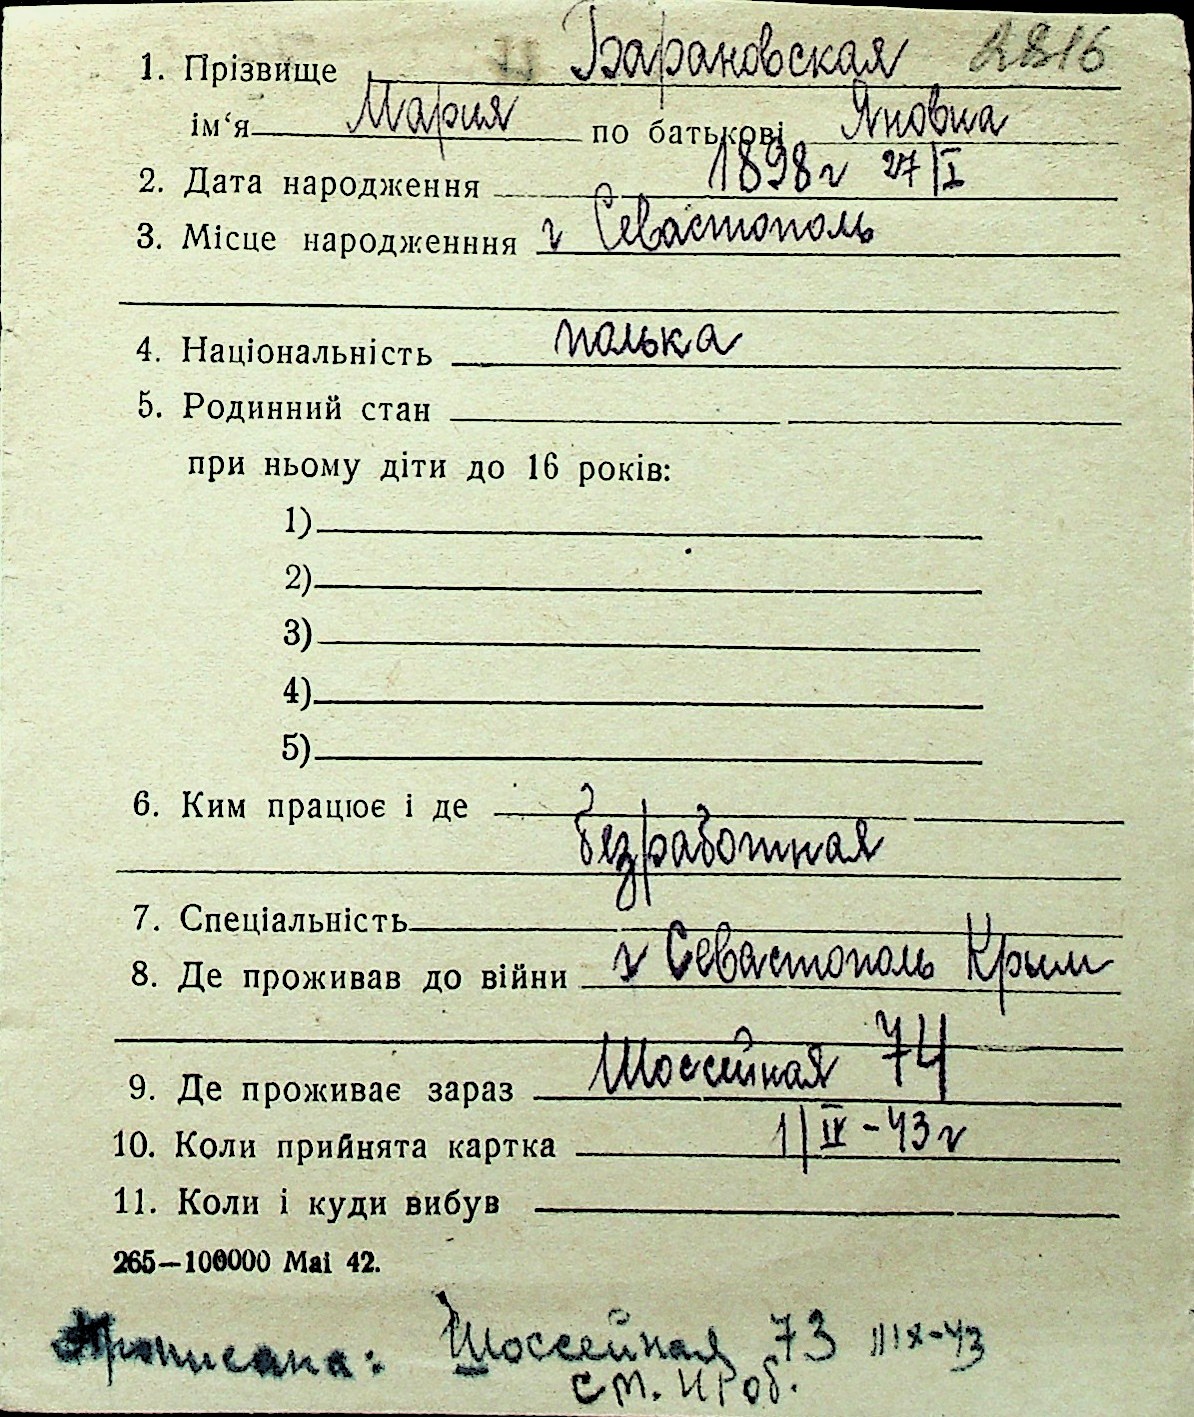 2816
1. Прізвище Барановская
ім‘я Мария по батькові Яновна
2. Дата народження 1898г 27/I
3. Місце народженння г Севастополь
4. Національність полька
5. Родинний стан
при ньому діти до 16 років:
1)
2)
3)
4)
5)
6. Ким працює і де
безработная
7. Спеціальність
8. Де проживав до війни г Севастополь Крым
9. Де проживає зараз Шоссейная 74
10. Коли прийнята картка 1/IV-43г
11. Коли і куди вибув
265—100000 Mai 42.
Прописана: Шоссейная 73
см.